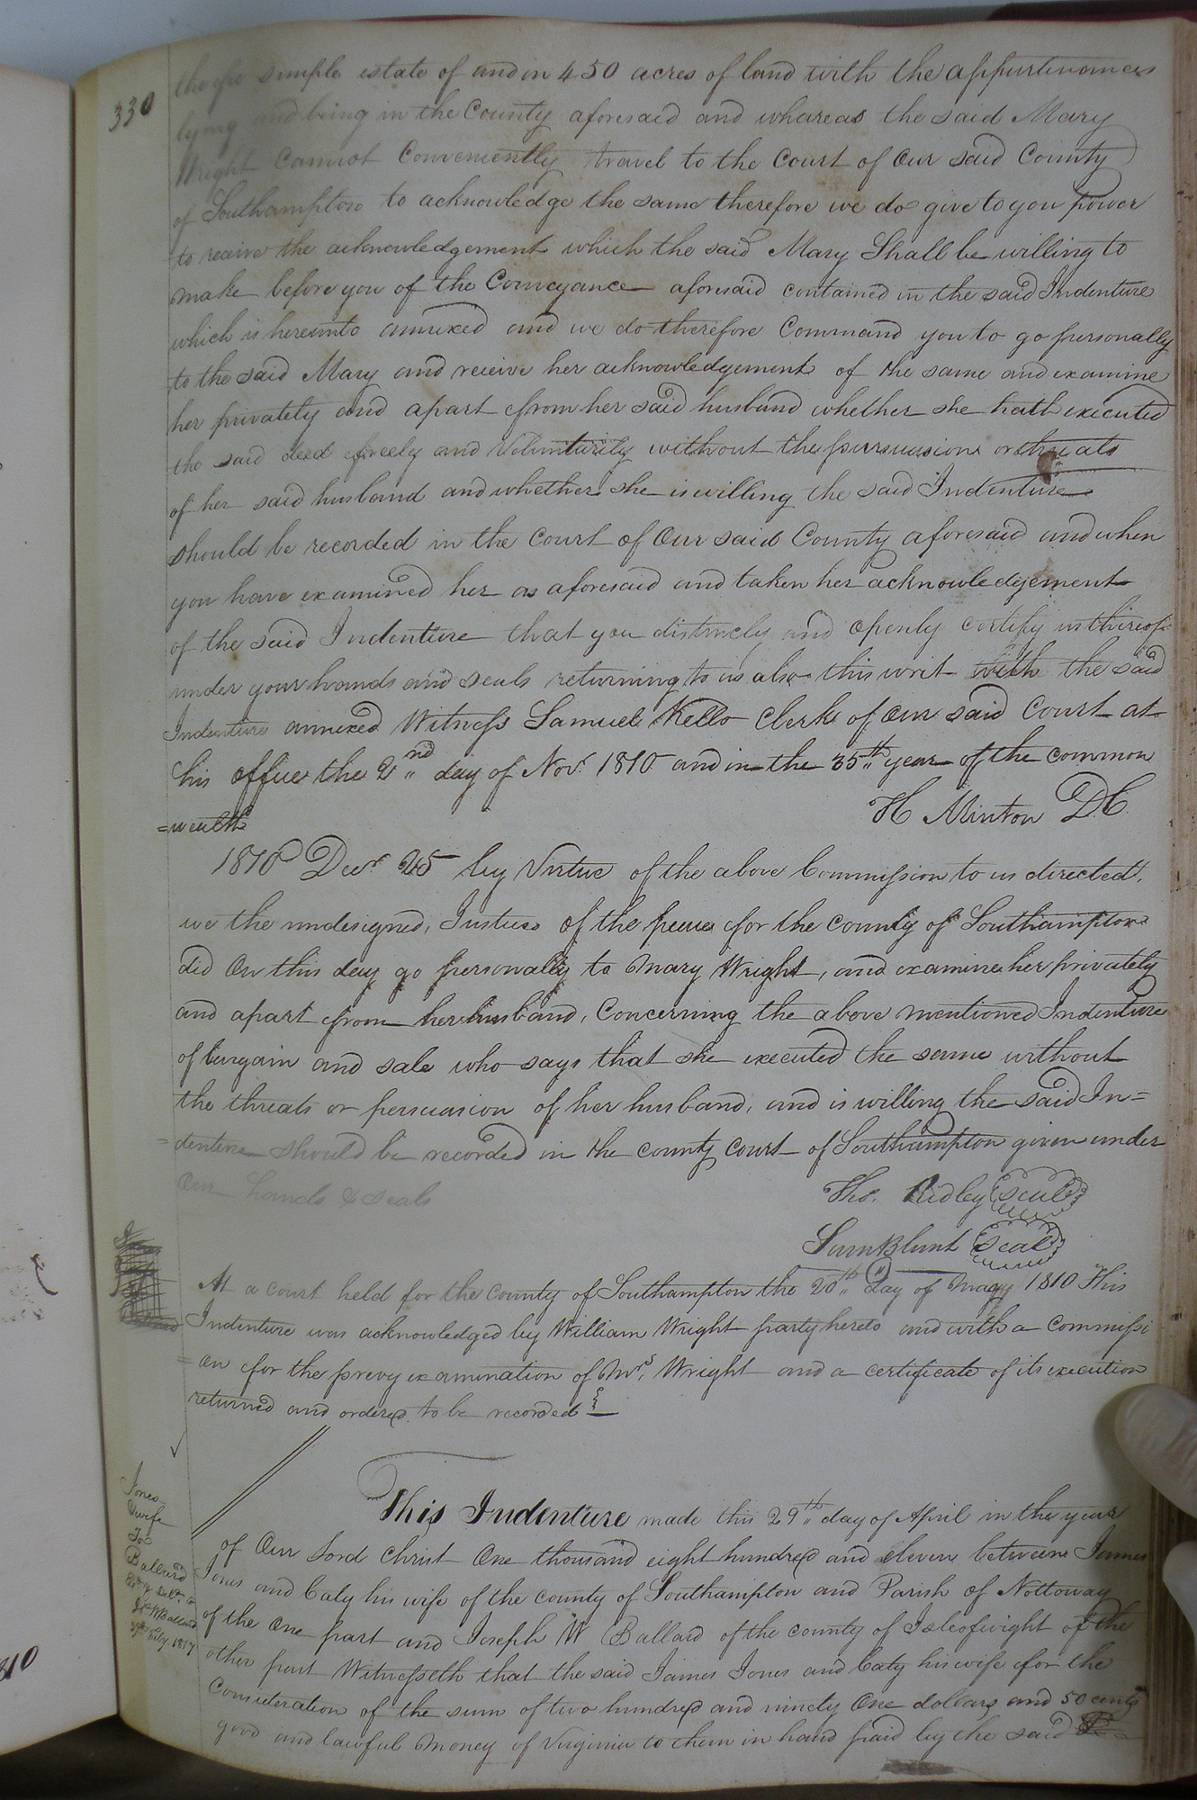 330
the fee simple estate of and in 450 acres of land with the appurtinances
lying and being in the County aforesaid and whareas the said Mary
Wright Cannot Conveniently travel to the Court of Our said County
of Southampton to acknowledge the same therefore we do give to you power
to receive the acknowledgement which the said Mary Shall be willing to
make before you of the Conveyance aforesaid contained in the said Indenture
which is hereunto annexed and we do therefore Command you to go personally
to the said Mary and receive her acknowledgement of the same and examine
her privately and apart from her said husband whether she hath executed
the said deed freely and Voluntirily without the pursuasions or threats
of her said husband and whether she is willing the said Indenture
should be recorded in the Court of Our said County aforesaid and when
you have examined her as aforesaid and taken her acknowledgement
of the said Indenture that you distincly and openly certify us thereof
under your hands and seals returning to us also this writ with the said
Indenture annexed Witness Samuel Kello Clerk of Our said Court at
his office the 2nd day of Novr. 1810 and in the 35th year of the common
=wealth
H Minton D.C.
1810 Decr. 25 by Virtue of the above Commission to us directed,
we the undesigned, Justices of the peace for the county of Southampton
did On this day go personally to Mary Wright, and examine her privately
and apart from her husband, Concerning the above mentioned Indenture
of bargain and sale who says that she executed the same without
the threats or persuasion of her husband, and is willing the said In=
=denture should be recorded in the county court of Southampton given under
Our hands & seals
Tho. Ridley (seal)
Sam Blunt (seal)
At a court held for the county of Southampton the 20th day of May 1810 This
Indenture was acknowledged by William Wright party hereto and with a Commissi
=on for the prevy examination of Mrs. Wright and a certificate of its execution
returned and ordered to be recorded
Jones
& wife
To
Ballard
This Indenture made this 29th day of April in the year
of Our Lord Christ One thousand eight hundred and eleven between James
Jones and Caty his wife of the county of Southampton and Parish of Nottoway
of the One part and Joseph W Ballard of the county of Isleofwight of the
other part Witnesseth that the said James Jones and Caty his wife for the
Consideration of the sum of two hundred and ninety One dollars and 50 cents
good and lawful money of Virginia to them in hand paid by the said